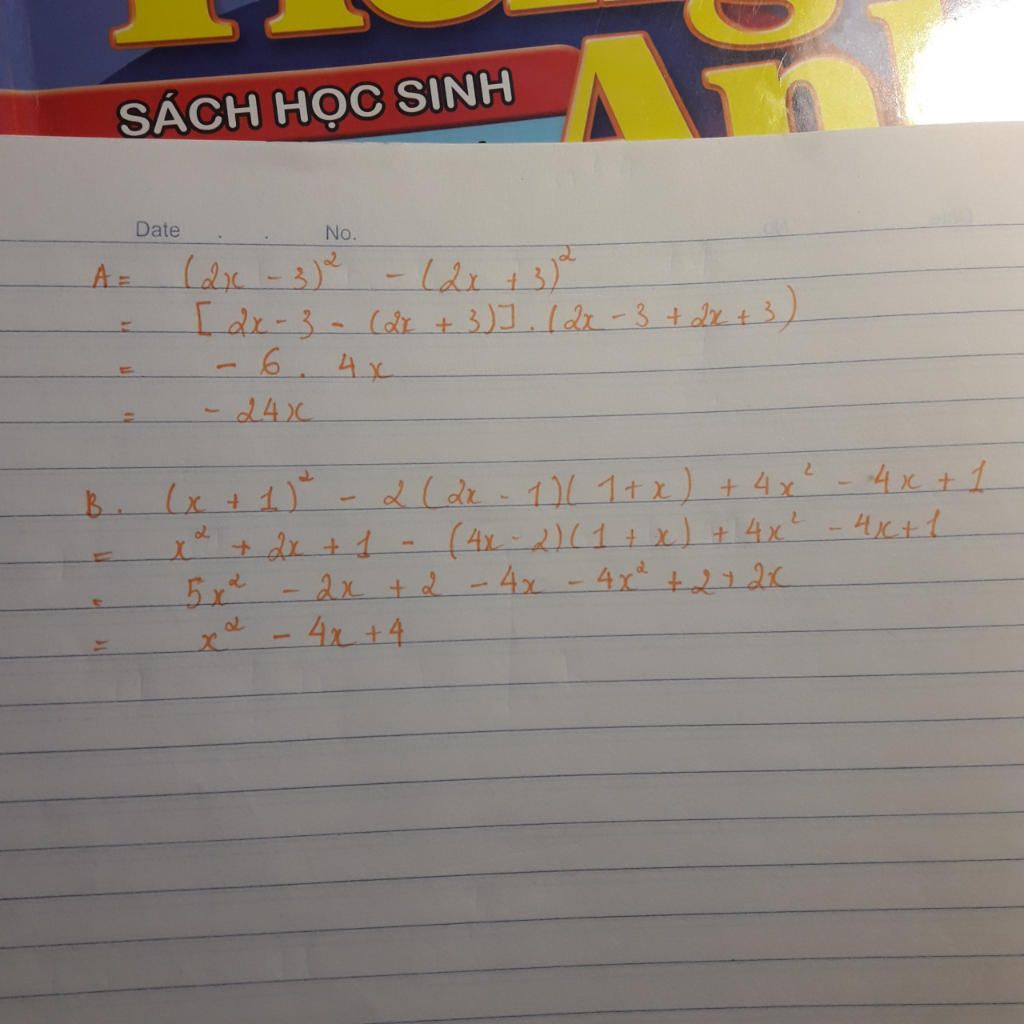 SÁCH HỌC SINH
Date . . No.
A = (2x - 3)² - (2x + 3)²
= [2x - 3 - (2x + 3)] . (2x - 3 + 2x + 3)
= - 6 . 4x
= - 24x
B. (x + 1)² - 2(2x - 1)(1 + x) + 4x² - 4x + 1
= x² + 2x + 1 - (4x - 2)(1 + x) + 4x² - 4x + 1
= 5x² - 2x + 2 - 4x - 4x² + 2 + 2x
= x² - 4x + 4